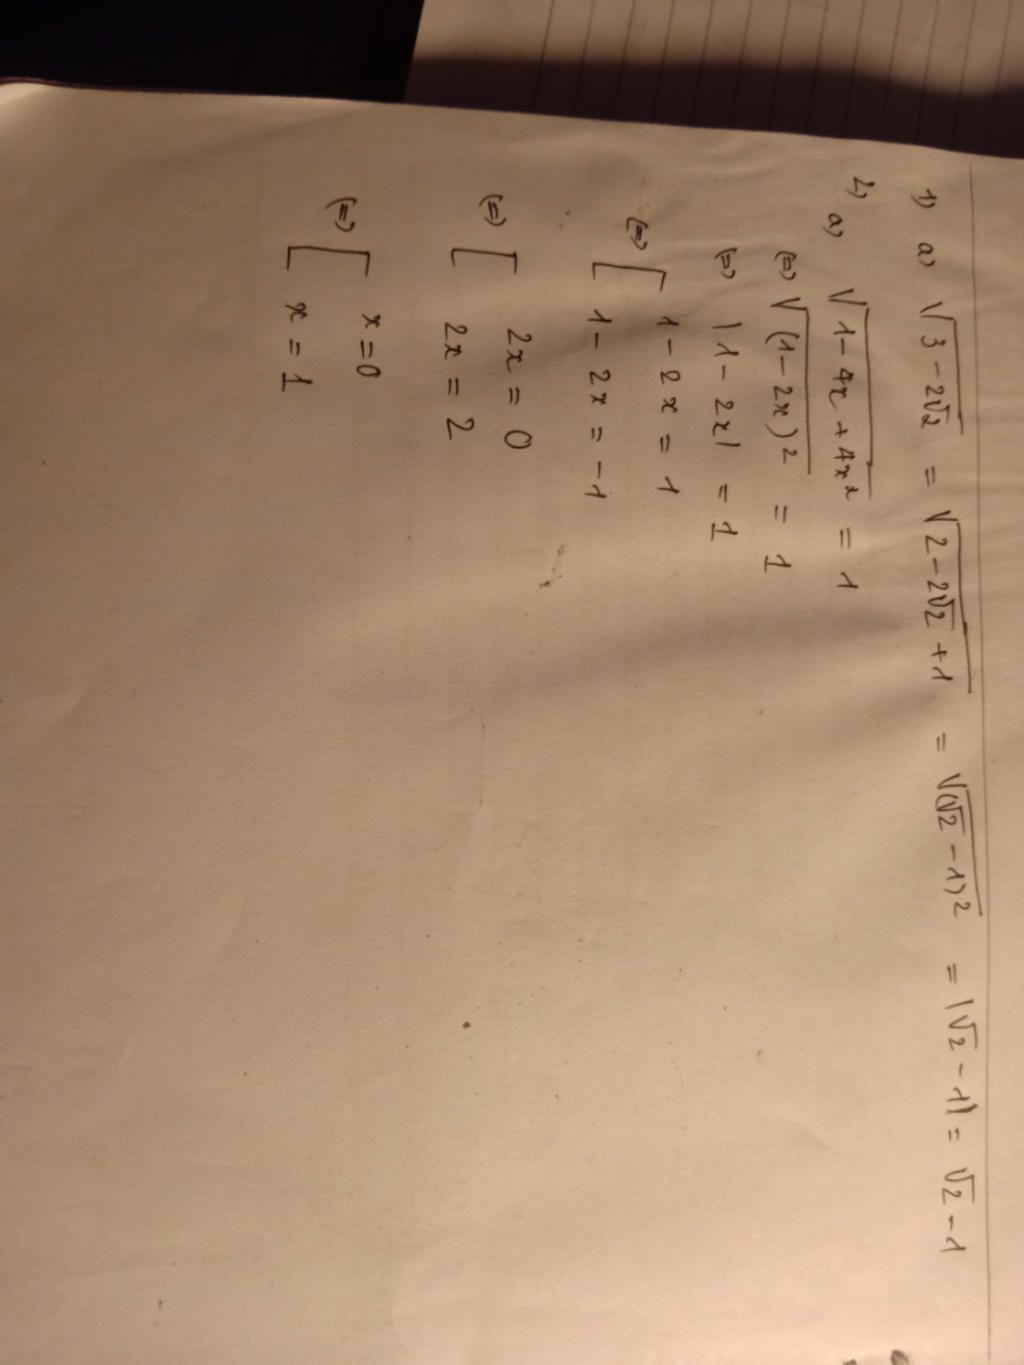 1) a) √3-2√2 = √2-2√2+1 = √(√2-1)² = |√2-1| = √2-1
2) a) √1-4x+4x² = 1
(=) √(1-2x)² = 1
(=) |1-2x| = 1
(=) [ 1-2x = 1
1-2x = -1
(=) [ 2x = 0
2x = 2
(=) [ x=0
x = 1